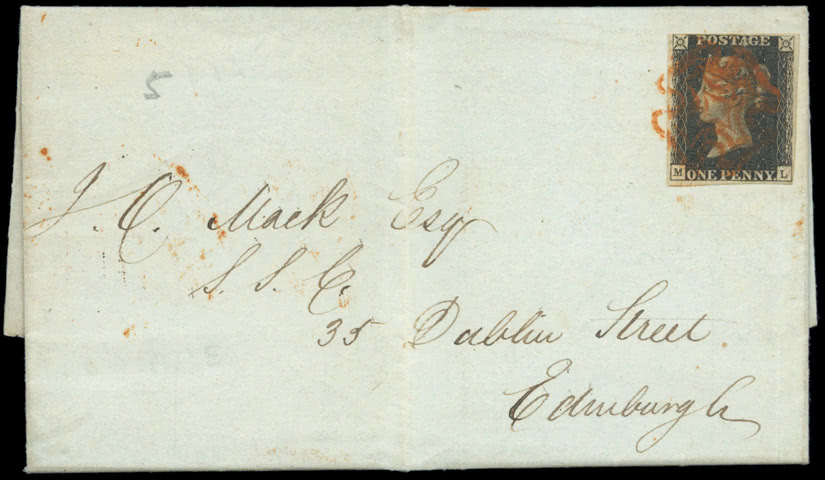 POSTAGE
M L
ONE PENNY.
J. C. Mack Esqr
S. S. C.
35 Dublin Street
Edinburgh